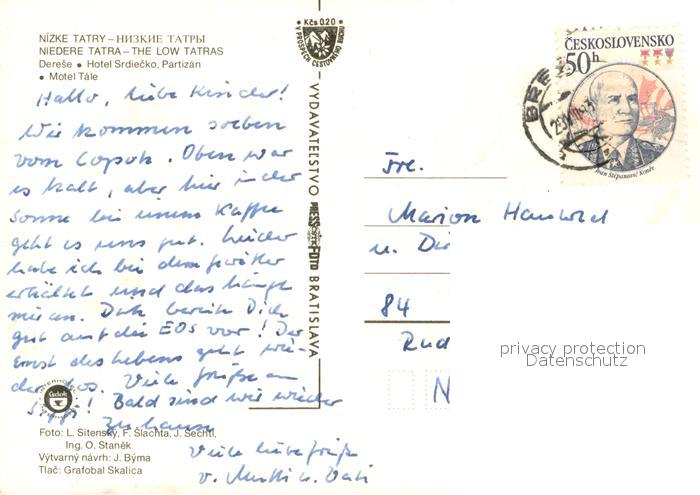 NÍZKE TATRY – НИЗКИЕ ТАТРЫ
NIEDERE TATRA – THE LOW TATRAS
Dereše • Hotel Srdiečko, Partizán
• Motel Tále
Hallo, liebe Kinder!
Wir kommen soeben
vom Čopok. Oben war
es kalt, aber hier in der
Sonne bei einem Kaffee
geht es uns gut. Leider
habe ich bei dem
erkältet und das hängt
mir an. Dich
gut auf die EOS vor! Der
Ernst des Lebens geht wie-
der los. Viele Grüße an
! Bald sind wir wieder
zu hause
Viele liebe Grüße
v. Mutti u. Vati
Foto: L. Sitenský, F. Šlachta, J. Sechtl,
Ing. O. Staněk
Výtvarný návrh: J. Býma
Tlač: Grafobal Skalica
Kčs 0,20
V PROSPECH CESTOVNÉHO RUCHU
VYDAVATEĽSTVO PRESSFOTO BRATISLAVA
ČESKOSLOVENSKO
50h
Ivan Štěpanovič Koněv
BRE
Frl.
Marion
u. Di
84
Rud
N
privacy protection
Datenschutz